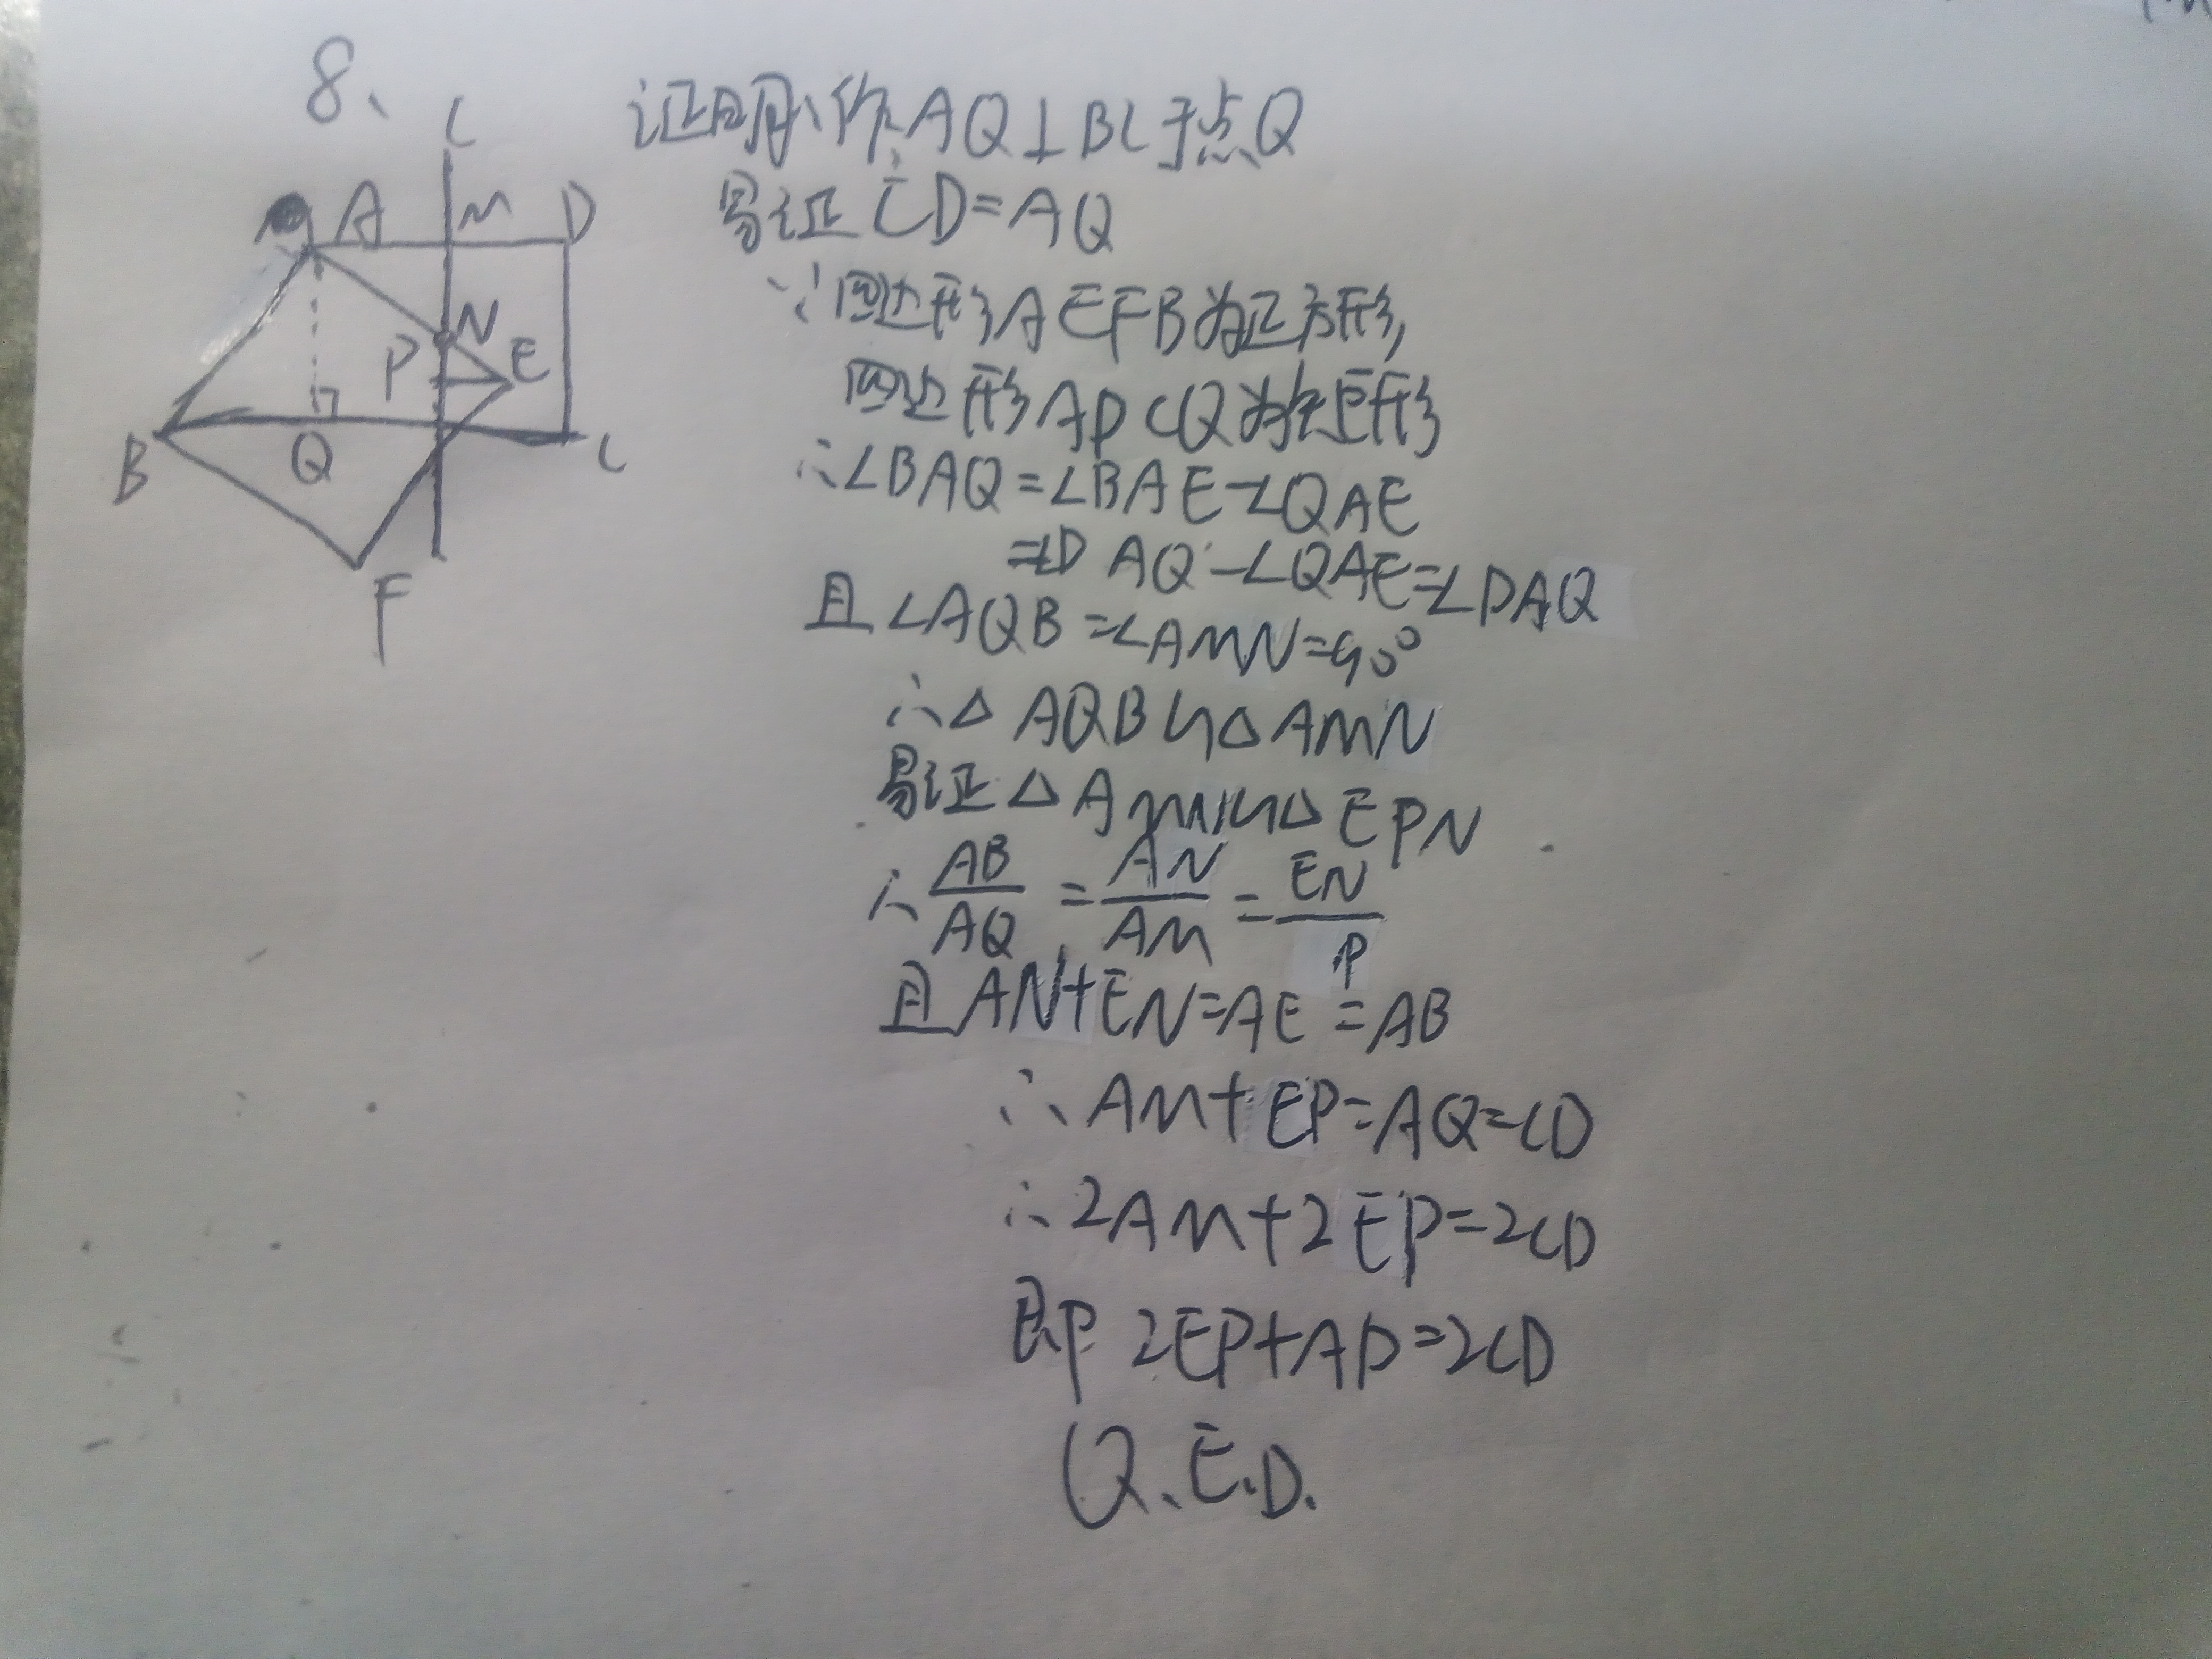 8、
L
A M D
N
P E
B Q C
F
证明:作AQ⊥BC于点Q
易证CD=AQ
∵四边形AEFB为正方形,
四边形ADCQ为矩形
∴∠BAQ=∠BAE-∠QAE
=∠DAQ-∠QAE=∠DAQ
且∠AQB=∠AMN=90°
∴△AQB∽△AMN
易证△AMN∽△EPN
∴AB/AQ=AN/AM=EN/P
且AN+EN=AE=AB
∴AM+EP=AQ=CD
∴2AM+2EP=2CD
即2EP+AD=2CD
Q.E.D.